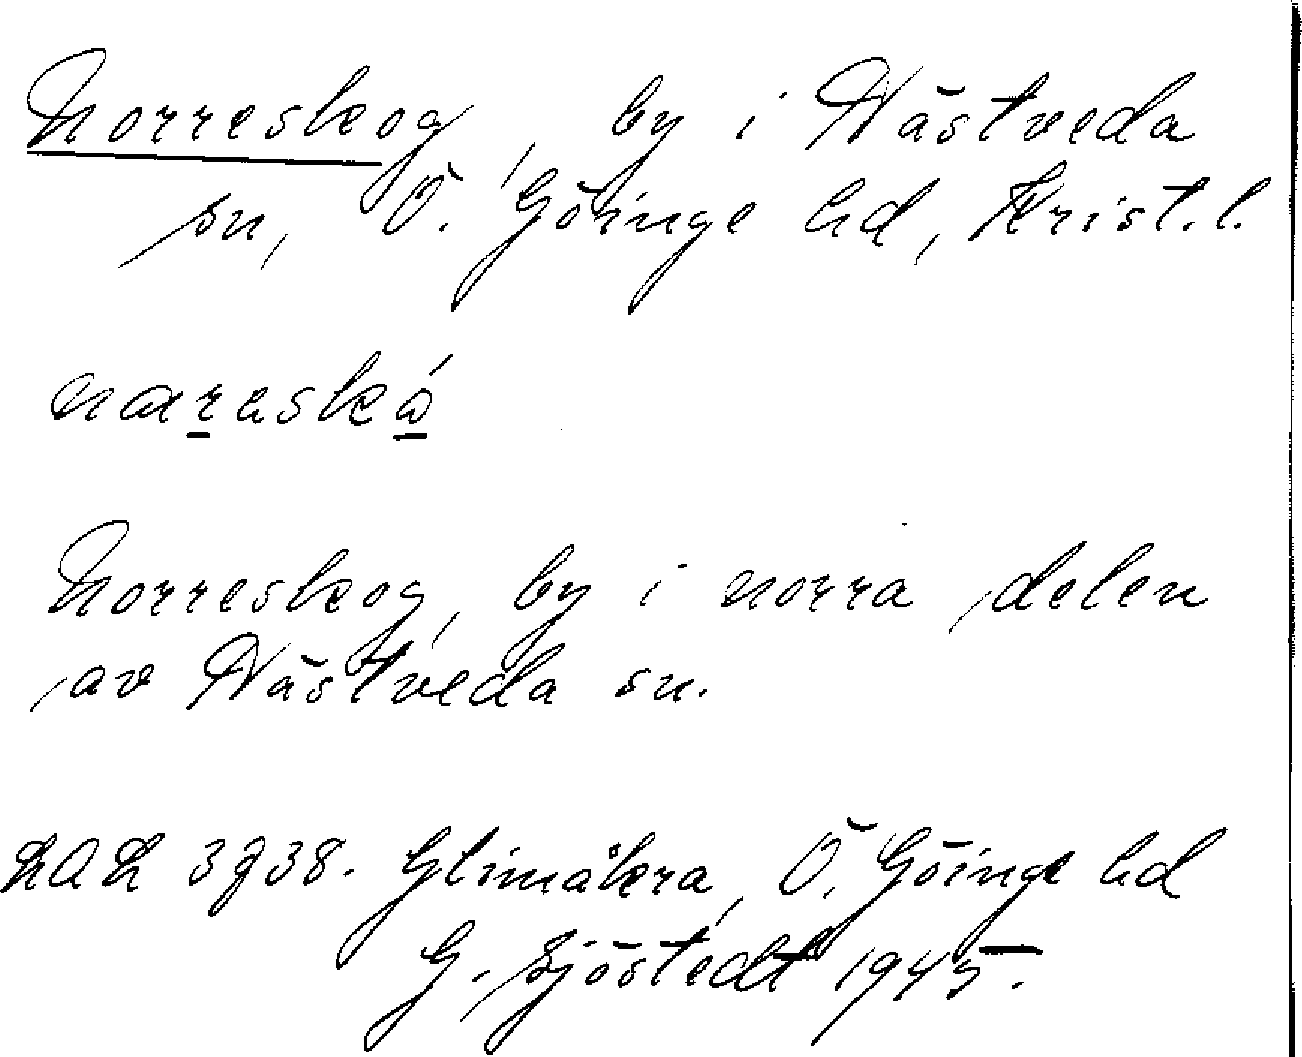 Norreskog, by i Nästveda
sn, Ö. Göinge hd, Krist.l.
Norreskog, by i norra delen
av Nästveda sn.
LAL 3738. Glimåkra, Ö. Göinge hd
G. Sjöstedt 1945.